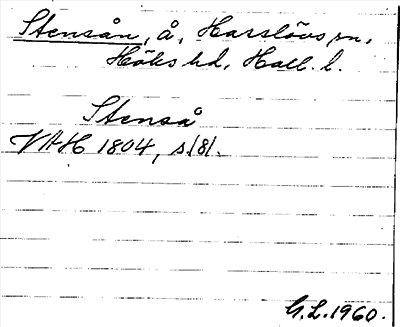 Stensån, å, Harslövs sn.
Höks hd, Hall. l.
Stenså
VAH 1804, s 181.
G.L. 1960.